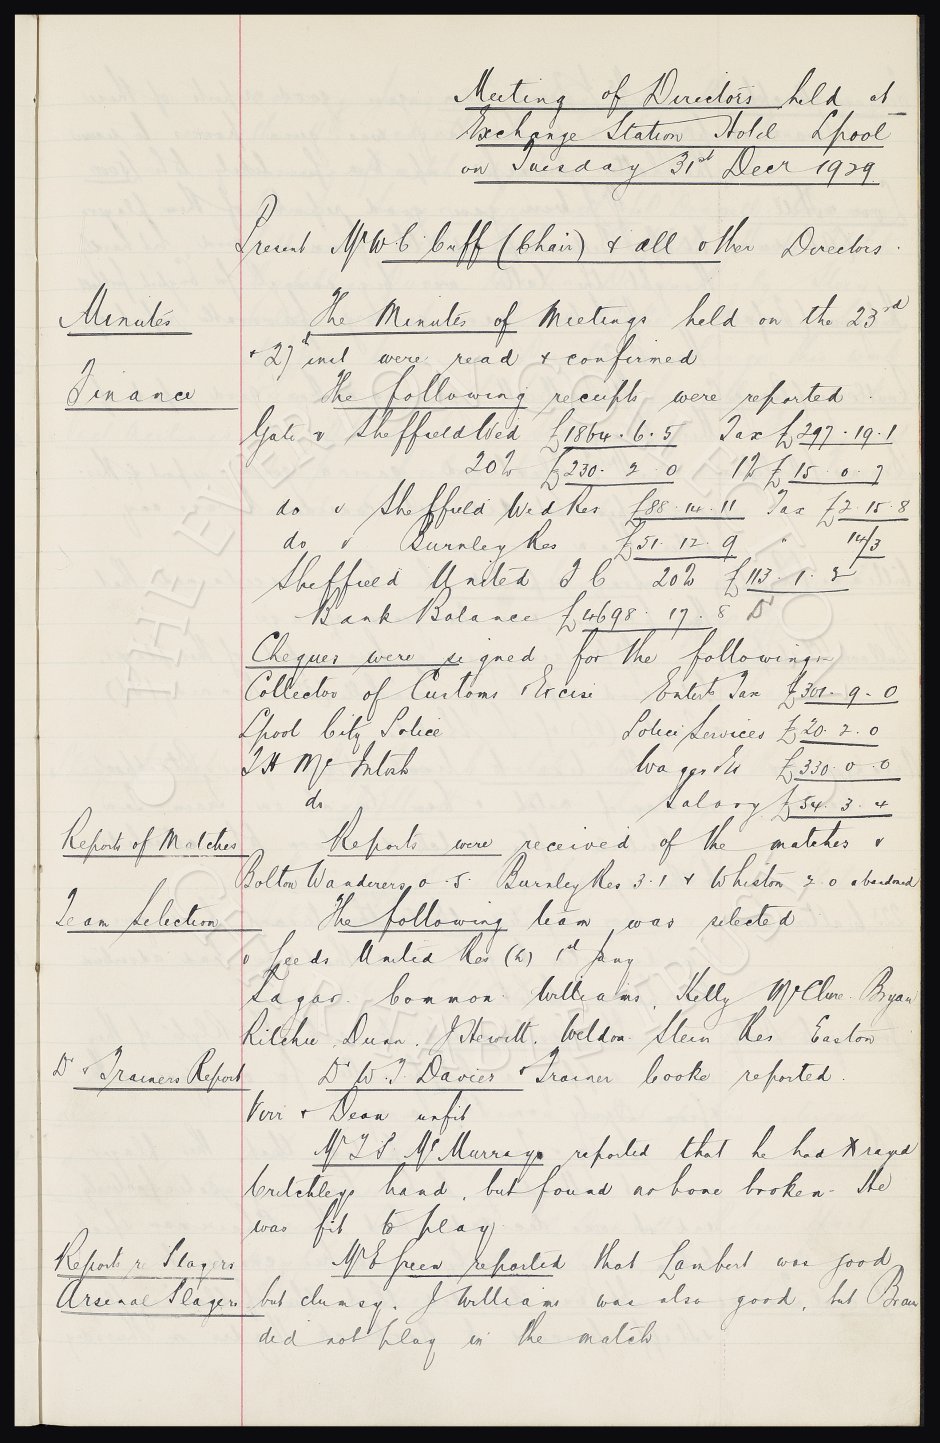 Meeting of Directors held at
Exchange Station Hotel Lpool
on Tuesday 31st Decr 1929.
Present Mr W. C. Cuff (Chair) & all other Directors.
Minutes The Minutes of Meetings held on the 23rd
& 27th inst were read & confirmed
Finance The following receipts were reported.
Gate v Sheffield Wed £1864.6.5 Tax £297.19.1
20% £230.2.0 1% £15.0.7
do v Sheffield Wed Res £88.14.11 Tax £2.15.8
do v Burnley Res £51.12.9 " 14/3
Sheffield United F C 20% £113.1.2
Bank Balance £4698.17.8 Dr
Cheques were signed for the following:-
Collector of Customs & Excise Entert Tax £301.9.0
Lpool City Police Police Services £20.2.0
T H McIntosh Wages Etc £330.0.0
do Salary £54.3.4
Reports of Matches Reports were received of the matches v
Bolton Wanderers 0.5. Burnley Res 3.1 & Whiston 2.0 abandoned
Team Selection The following team was selected
v Leeds United Res (h) 1st Jany
Sagar. Common. Williams, Kelly McClure. Bryan
Ritchie Dunn. J Hewitt. Weldon. Stein Res Easton
Dr & Trainers Report Dr W. T. Davies & Trainer Cooke reported.
Virr & Dean unfit
Mr T S McMurray reported that he had X rayed
Critchleys hand, but found no bone broken. He
was fit to play.
Reports re Players Mr E Green reported that Lambert was good
Arsenal Players but clumsy. J Williams was also good, but
did not play in the match